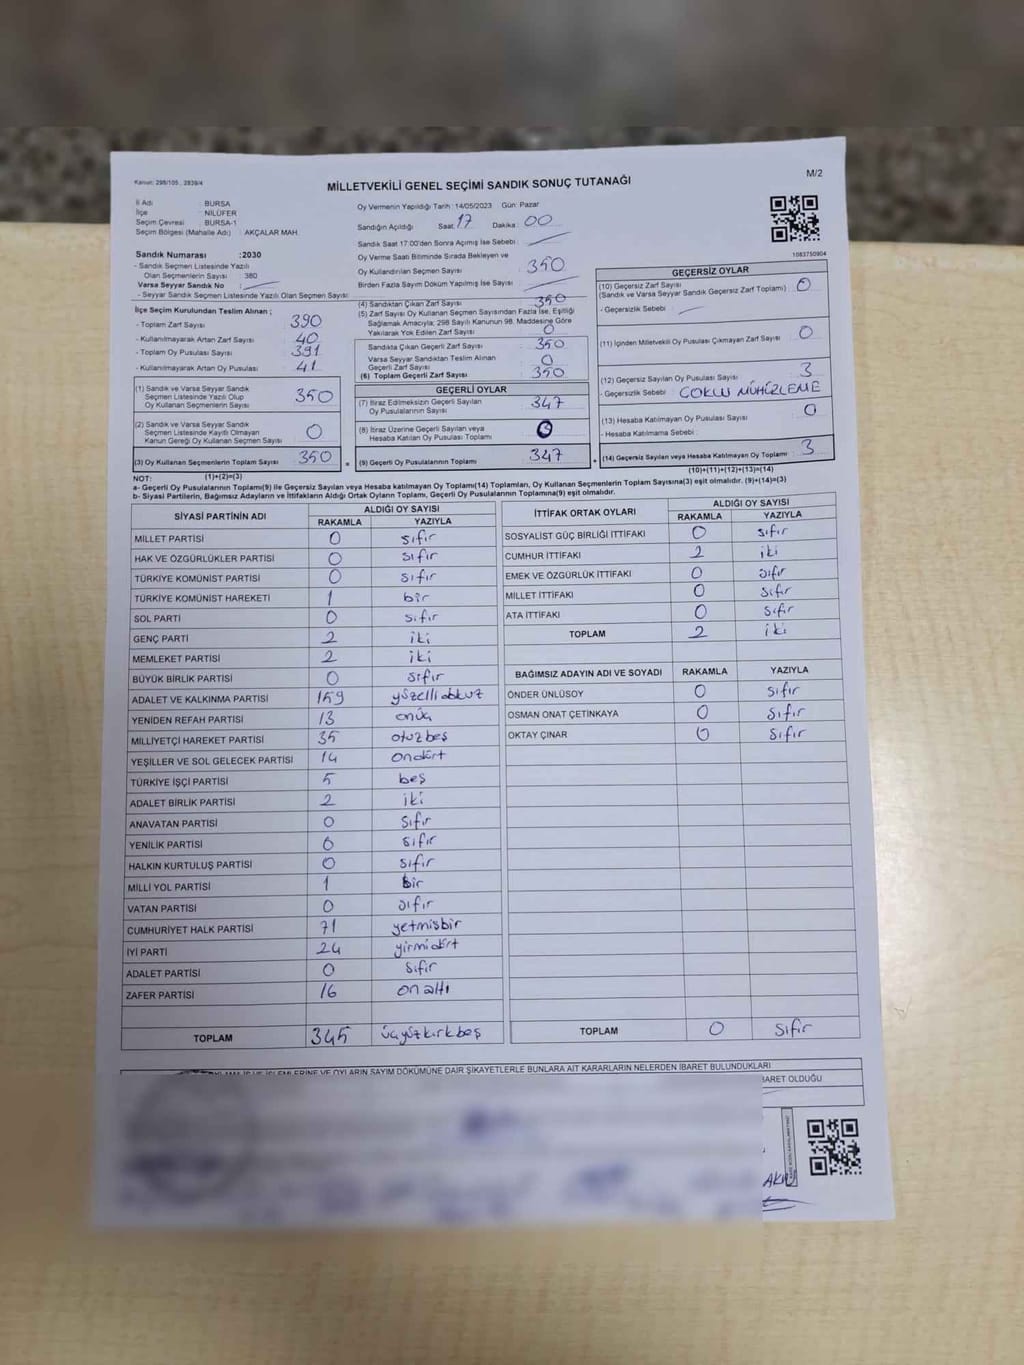 Kanun: 298/105 , 2839/4
MİLLETVEKİLİ GENEL SEÇİMİ SANDIK SONUÇ TUTANAĞI
M/2
İl Adı : BURSA
İlçe : NİLÜFER
Seçim Çevresi : BURSA-1
Seçim Bölgesi (Mahalle Adı) : AKÇALAR MAH.
Sandık Numarası :2030
- Sandık Seçmen Listesinde Yazılı
Olan Seçmenlerin Sayısı : 380
Varsa Seyyar Sandık No :
- Seyyar Sandık Seçmen Listesinde Yazılı Olan Seçmen Sayısı:
Oy Vermenin Yapıldığı Tarih :14/05/2023 Gün: Pazar
Sandığın Açıldığı Saat: 17 Dakika: 00
Sandık Saat 17:00'den Sonra Açılmış İse Sebebi :
Oy Verme Saati Bitiminde Sırada Bekleyen ve
Oy Kullandırılan Seçmen Sayısı : 350
Birden Fazla Sayım Döküm Yapılmış İse Sayısı :
1083750904
İlçe Seçim Kurulundan Teslim Alınan ;
- Toplam Zarf Sayısı : 390
- Kullanılmayarak Artan Zarf Sayısı : 40
- Toplam Oy Pusulası Sayısı : 391
- Kullanılmayarak Artan Oy Pusulası : 41
(1) Sandık ve Varsa Seyyar Sandık
Seçmen Listesinde Yazılı Olup
Oy Kullanan Seçmenlerin Sayısı : 350
(2) Sandık ve Varsa Seyyar Sandık
Seçmen Listesinde Kayıtlı Olmayan
Kanun Gereği Oy Kullanan Seçmen Sayısı : 0
(3) Oy Kullanan Seçmenlerin Toplam Sayısı : 350
(1)+(2)=(3)
(4) Sandıktan Çıkan Zarf Sayısı : 350
(5) Zarf Sayısı Oy Kullanan Seçmen Sayısından Fazla İse, Eşitliği
Sağlamak Amacıyla; 298 Sayılı Kanunun 98. Maddesine Göre
Yakılarak Yok Edilen Zarf Sayısı : 0
Sandıkta Çıkan Geçerli Zarf Sayısı : 350
Varsa Seyyar Sandıktan Teslim Alınan
Geçerli Zarf Sayısı : 0
(6) Toplam Geçerli Zarf Sayısı : 350
GEÇERLİ OYLAR
(7) İtiraz Edilmeksizin Geçerli Sayılan
Oy Pusulalarının Sayısı : 347
(8) İtiraz Üzerine Geçerli Sayılan veya
Hesaba Katılan Oy Pusulası Toplamı : 0
= (9) Geçerli Oy Pusulalarının Toplamı : 347
GEÇERSİZ OYLAR
(10) Geçersiz Zarf Sayısı : 0
(Sandık ve Varsa Seyyar Sandık Geçersiz Zarf Toplamı)
- Geçersizlik Sebebi :
(11) İçinden Milletvekili Oy Pusulası Çıkmayan Zarf Sayısı : 0
(12) Geçersiz Sayılan Oy Pusulası Sayısı : 3
- Geçersizlik Sebebi : ÇOKLU MÜHÜRLEME
(13) Hesaba Katılmayan Oy Pusulası Sayısı : 0
- Hesaba Katılmama Sebebi :
+ (14) Geçersiz Sayılan veya Hesaba Katılmayan Oy Toplamı : 3
(10)+(11)+(12)+(13)=(14)
NOT:
a- Geçerli Oy Pusulalarının Toplamı(9) ile Geçersiz Sayılan veya Hesaba katılmayan Oy Toplamı(14) Toplamları, Oy Kullanan Seçmenlerin Toplam Sayısına(3) eşit olmalıdır. (9)+(14)=(3)
b- Siyasi Partilerin, Bağımsız Adayların ve İttifakların Aldığı Ortak Oyların Toplamı, Geçerli Oy Pusulalarının Toplamına(9) eşit olmalıdır.
SİYASİ PARTİNİN ADI ALDIĞI OY SAYISI
RAKAMLA YAZIYLA
MİLLET PARTİSİ 0 sıfır
HAK VE ÖZGÜRLÜKLER PARTİSİ 0 sıfır
TÜRKİYE KOMÜNİST PARTİSİ 0 sıfır
TÜRKİYE KOMÜNİST HAREKETİ 1 bir
SOL PARTİ 0 sıfır
GENÇ PARTİ 2 iki
MEMLEKET PARTİSİ 2 iki
BÜYÜK BİRLİK PARTİSİ 0 sıfır
ADALET VE KALKINMA PARTİSİ 159 yüzellidokuz
YENİDEN REFAH PARTİSİ 13 onüç
MİLLİYETÇİ HAREKET PARTİSİ 35 otuzbeş
YEŞİLLER VE SOL GELECEK PARTİSİ 14 ondört
TÜRKİYE İŞÇİ PARTİSİ 5 beş
ADALET BİRLİK PARTİSİ 2 iki
ANAVATAN PARTİSİ 0 sıfır
YENİLİK PARTİSİ 0 sıfır
HALKIN KURTULUŞ PARTİSİ 0 sıfır
MİLLİ YOL PARTİSİ 1 bir
VATAN PARTİSİ 0 sıfır
CUMHURİYET HALK PARTİSİ 71 yetmişbir
İYİ PARTİ 24 yirmidört
ADALET PARTİSİ 0 sıfır
ZAFER PARTİSİ 16 onaltı
TOPLAM 345 üçyüzkırkbeş
İTTİFAK ORTAK OYLARI ALDIĞI OY SAYISI
RAKAMLA YAZIYLA
SOSYALİST GÜÇ BİRLİĞİ İTTİFAKI 0 sıfır
CUMHUR İTTİFAKI 2 iki
EMEK VE ÖZGÜRLÜK İTTİFAKI 0 sıfır
MİLLET İTTİFAKI 0 sıfır
ATA İTTİFAKI 0 sıfır
TOPLAM 2 iki
BAĞIMSIZ ADAYIN ADI VE SOYADI RAKAMLA YAZIYLA
ÖNDER ÜNLÜSOY 0 sıfır
OSMAN ONAT ÇETİNKAYA 0 sıfır
OKTAY ÇINAR 0 sıfır
TOPLAM 0 sıfır
İŞLEMLERİNE VE OYLARIN SAYIM DÖKÜMÜNE DAİR ŞİKAYETLERLE BUNLARA AİT KARARLARIN NELERDEN İBARET BULUNDUKLARI
BARET OLDUĞU